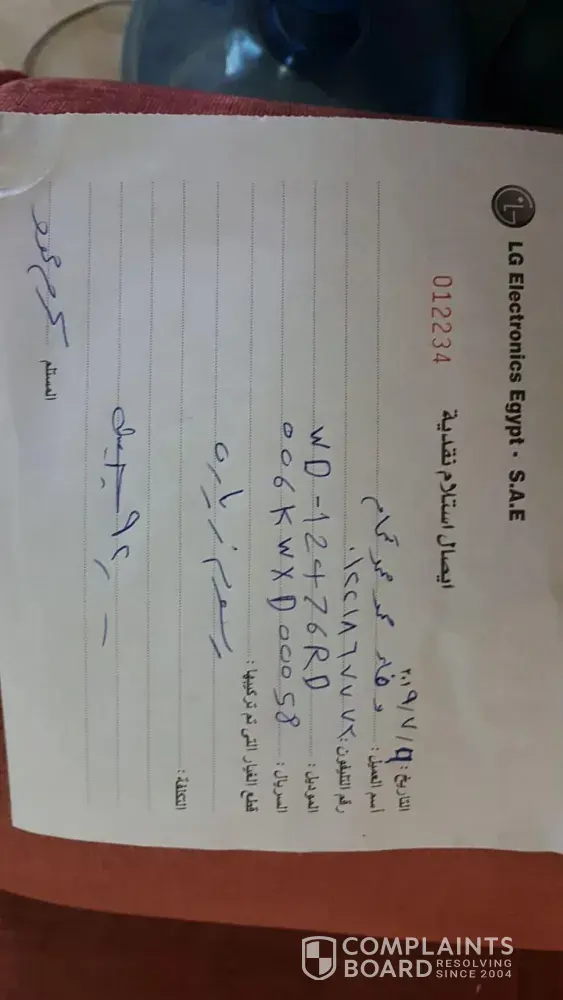 LG Electronics Egypt - S.A.E
ايصال استلام نقدية
012234
التاريخ : ٩/٧/٢٠١٩
أسم العميل :
رقم التليفون :
الموديل : WD-12476RD
السريال : 006KWXD00058
قطع الغيار التى تم تركيبها :
رسوم زيارة
التكلفة :
جنيه
المستلم
COMPLAINTS
BOARD RESOLVING
SINCE 2004